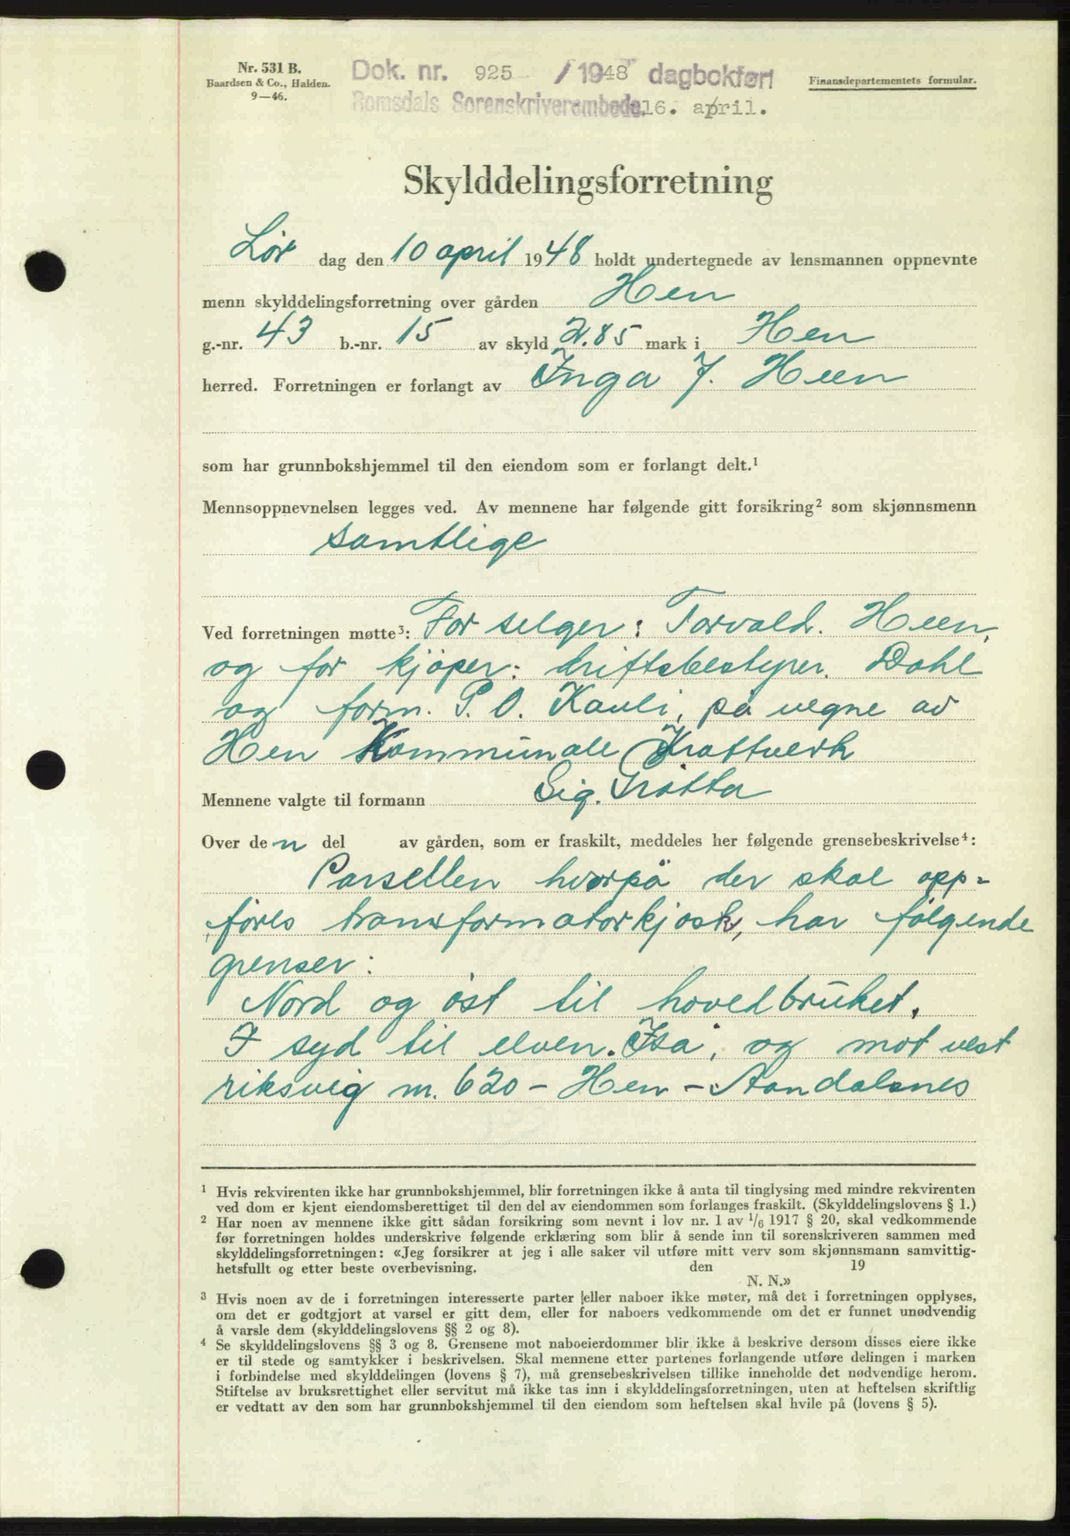 Nr. 531 B.
Baardsen & Co., Halden.
9—46.
Dok. nr. 925 / 1948 dagbokført
Romsdals Sorenskriverembede 16. april.
Finansdepartementets formular.
Skylddelingsforretning
Lør dag den 10 april 1948 holdt undertegnede av lensmannen oppnevnte
menn skylddelingsforretning over gården Hen
g.-nr. 43 b.-nr. 15 av skyld 2.85 mark i Hen
herred. Forretningen er forlangt av Inga J. Heen
som har grunnbokshjemmel til den eiendom som er forlangt delt.¹
Mennsoppnevnelsen legges ved. Av mennene har følgende gitt forsikring² som skjønnsmenn
samtlige
Ved forretningen møtte³: For selger: Torvald. Heen,
og for kjöper: driftsbestyrer. Dahl
og form. P. O. Kavli, på vegne av
Hen Kommunale Kraftverk
Mennene valgte til formann Sig. Grøtta
Over de n del av gården, som er fraskilt, meddeles her følgende grensebeskrivelse⁴:
Parsellen hvorpå der skal opp=
føres transformatorkjosk, har følgende
grenser:
Nord og øst til hovedbruket.
I syd til elven. Isa, og mot vest
riksveig nr. 620 - Hen - Aandalsnes
¹ Hvis rekvirenten ikke har grunnbokshjemmel, blir forretningen ikke å anta til tinglysing med mindre rekvirenten
ved dom er kjent eiendomsberettiget til den del av eiendommen som forlanges fraskilt. (Skylddelingslovens § 1.)
² Har noen av mennene ikke gitt sådan forsikring som nevnt i lov nr. 1 av 1/6 1917 § 20, skal vedkommende
før forretningen holdes underskrive følgende erklæring som blir å sende inn til sorenskriveren sammen med
skylddelingsforretningen: «Jeg forsikrer at jeg i alle saker vil utføre mitt verv som skjønnsmann samvittig-
hetsfullt og etter beste overbevisning. den 19
N. N.»
³ Hvis noen av de i forretningen interesserte parter eller naboer ikke møter, må det i forretningen opplyses,
om det er godtgjort at varsel er gitt dem, eller for naboers vedkommende om det er funnet unødvendig
å varsle dem (skylddelingslovens §§ 2 og 8).
⁴ Se skylddelingslovens §§ 3 og 8. Grensene mot naboeierdommer blir ikke å beskrive dersom disses eiere ikke
er til stede og samtykker i beskrivelsen. Skal mennene etter partenes forlangende utføre delingen i marken
i forbindelse med skylddelingen (lovens § 7), må grensebeskrivelsen tillike inneholde det nødvendige herom.
Stiftelse av bruksrettighet eller servitut må ikke tas inn i skylddelingsforretningen, uten at heftelsen skriftlig
er vedtatt av den som har grunnbokshjemmel til den eiendom som heftelsen skal hvile på (lovens § 5).